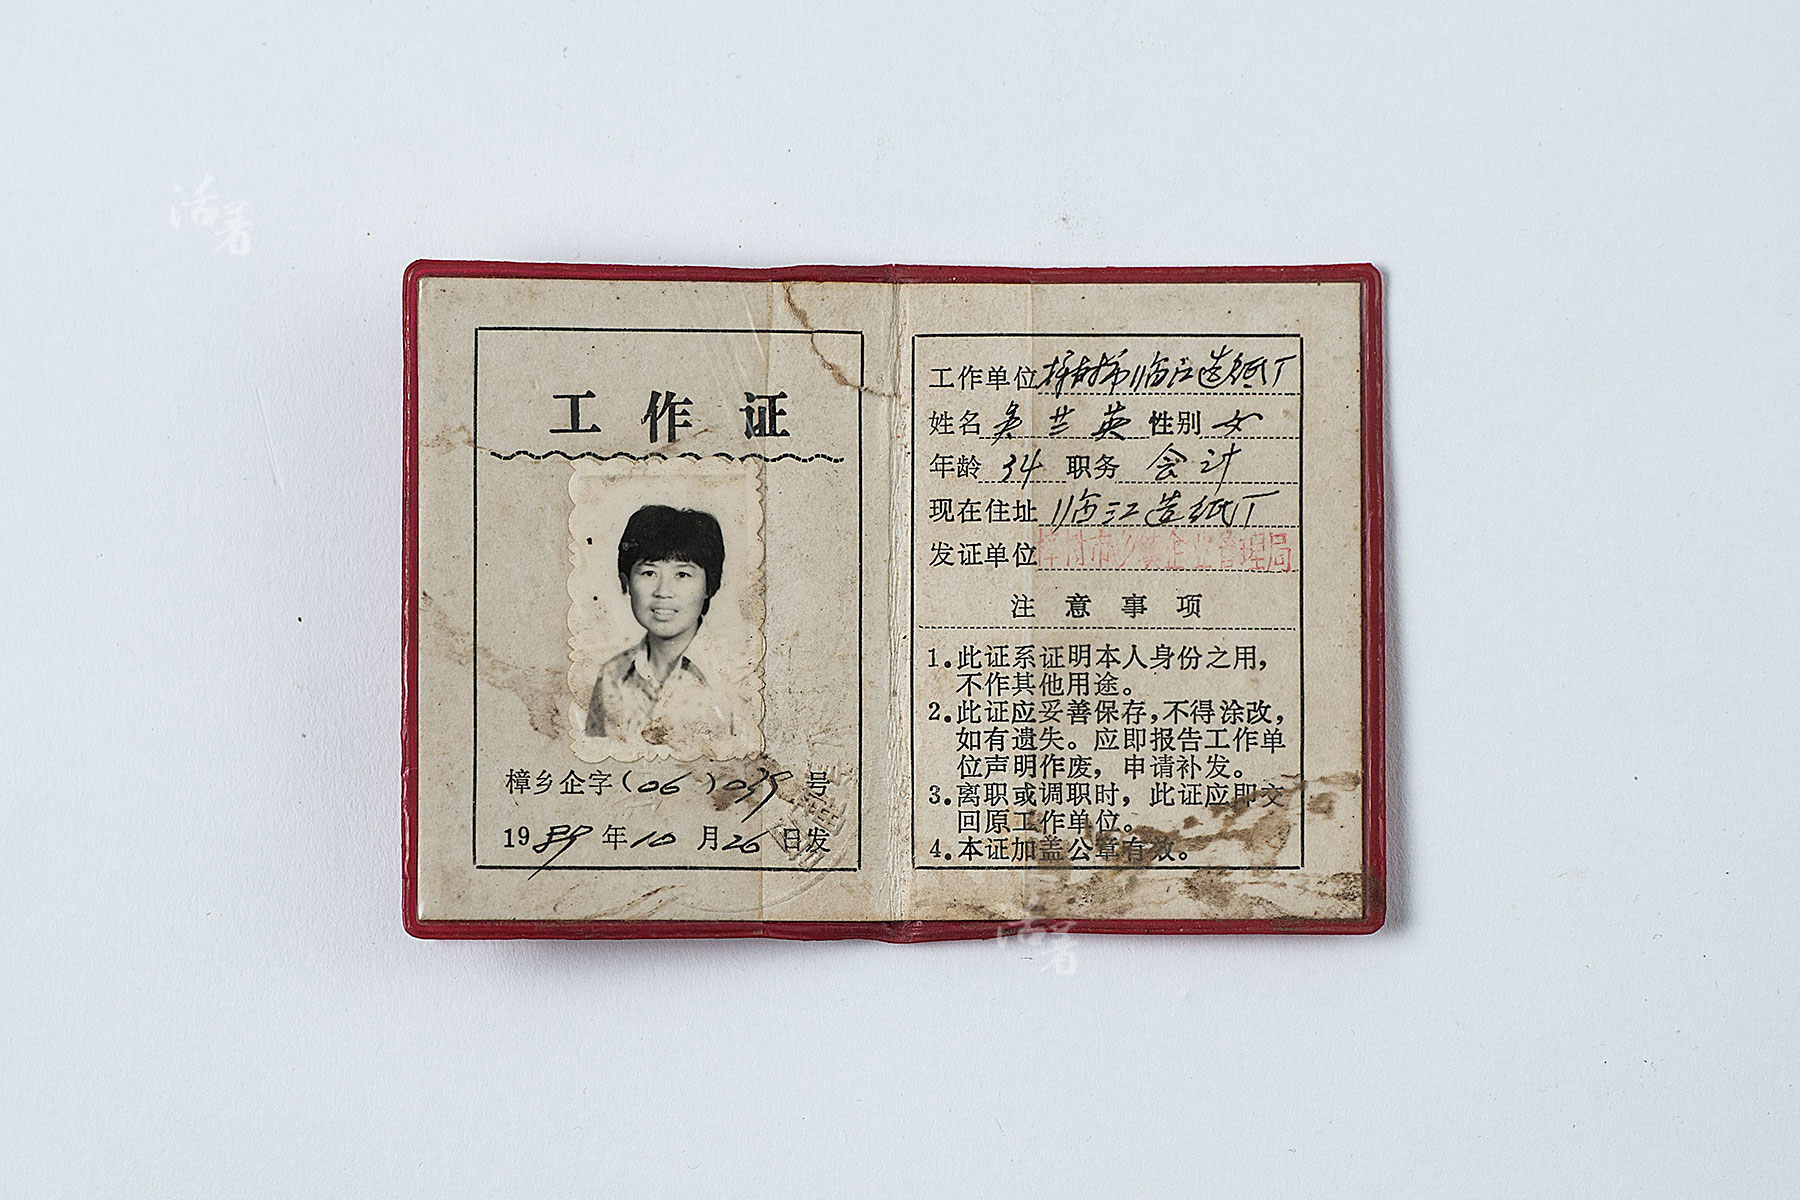 活着
工作证
樟乡企字(06)039号
1989年10月26日发
工作单位樟树市临江造纸厂
姓名吴兰英性别女
年龄34职务会计
现在住址临江造纸厂
发证单位樟树市乡镇企业管理局
注意事项
1.此证系证明本人身份之用,
不作其他用途。
2.此证应妥善保存,不得涂改,
如有遗失。应即报告工作单
位声明作废,申请补发。
3.离职或调职时,此证应即交
回原工作单位。
4.本证加盖公章有效。
活着